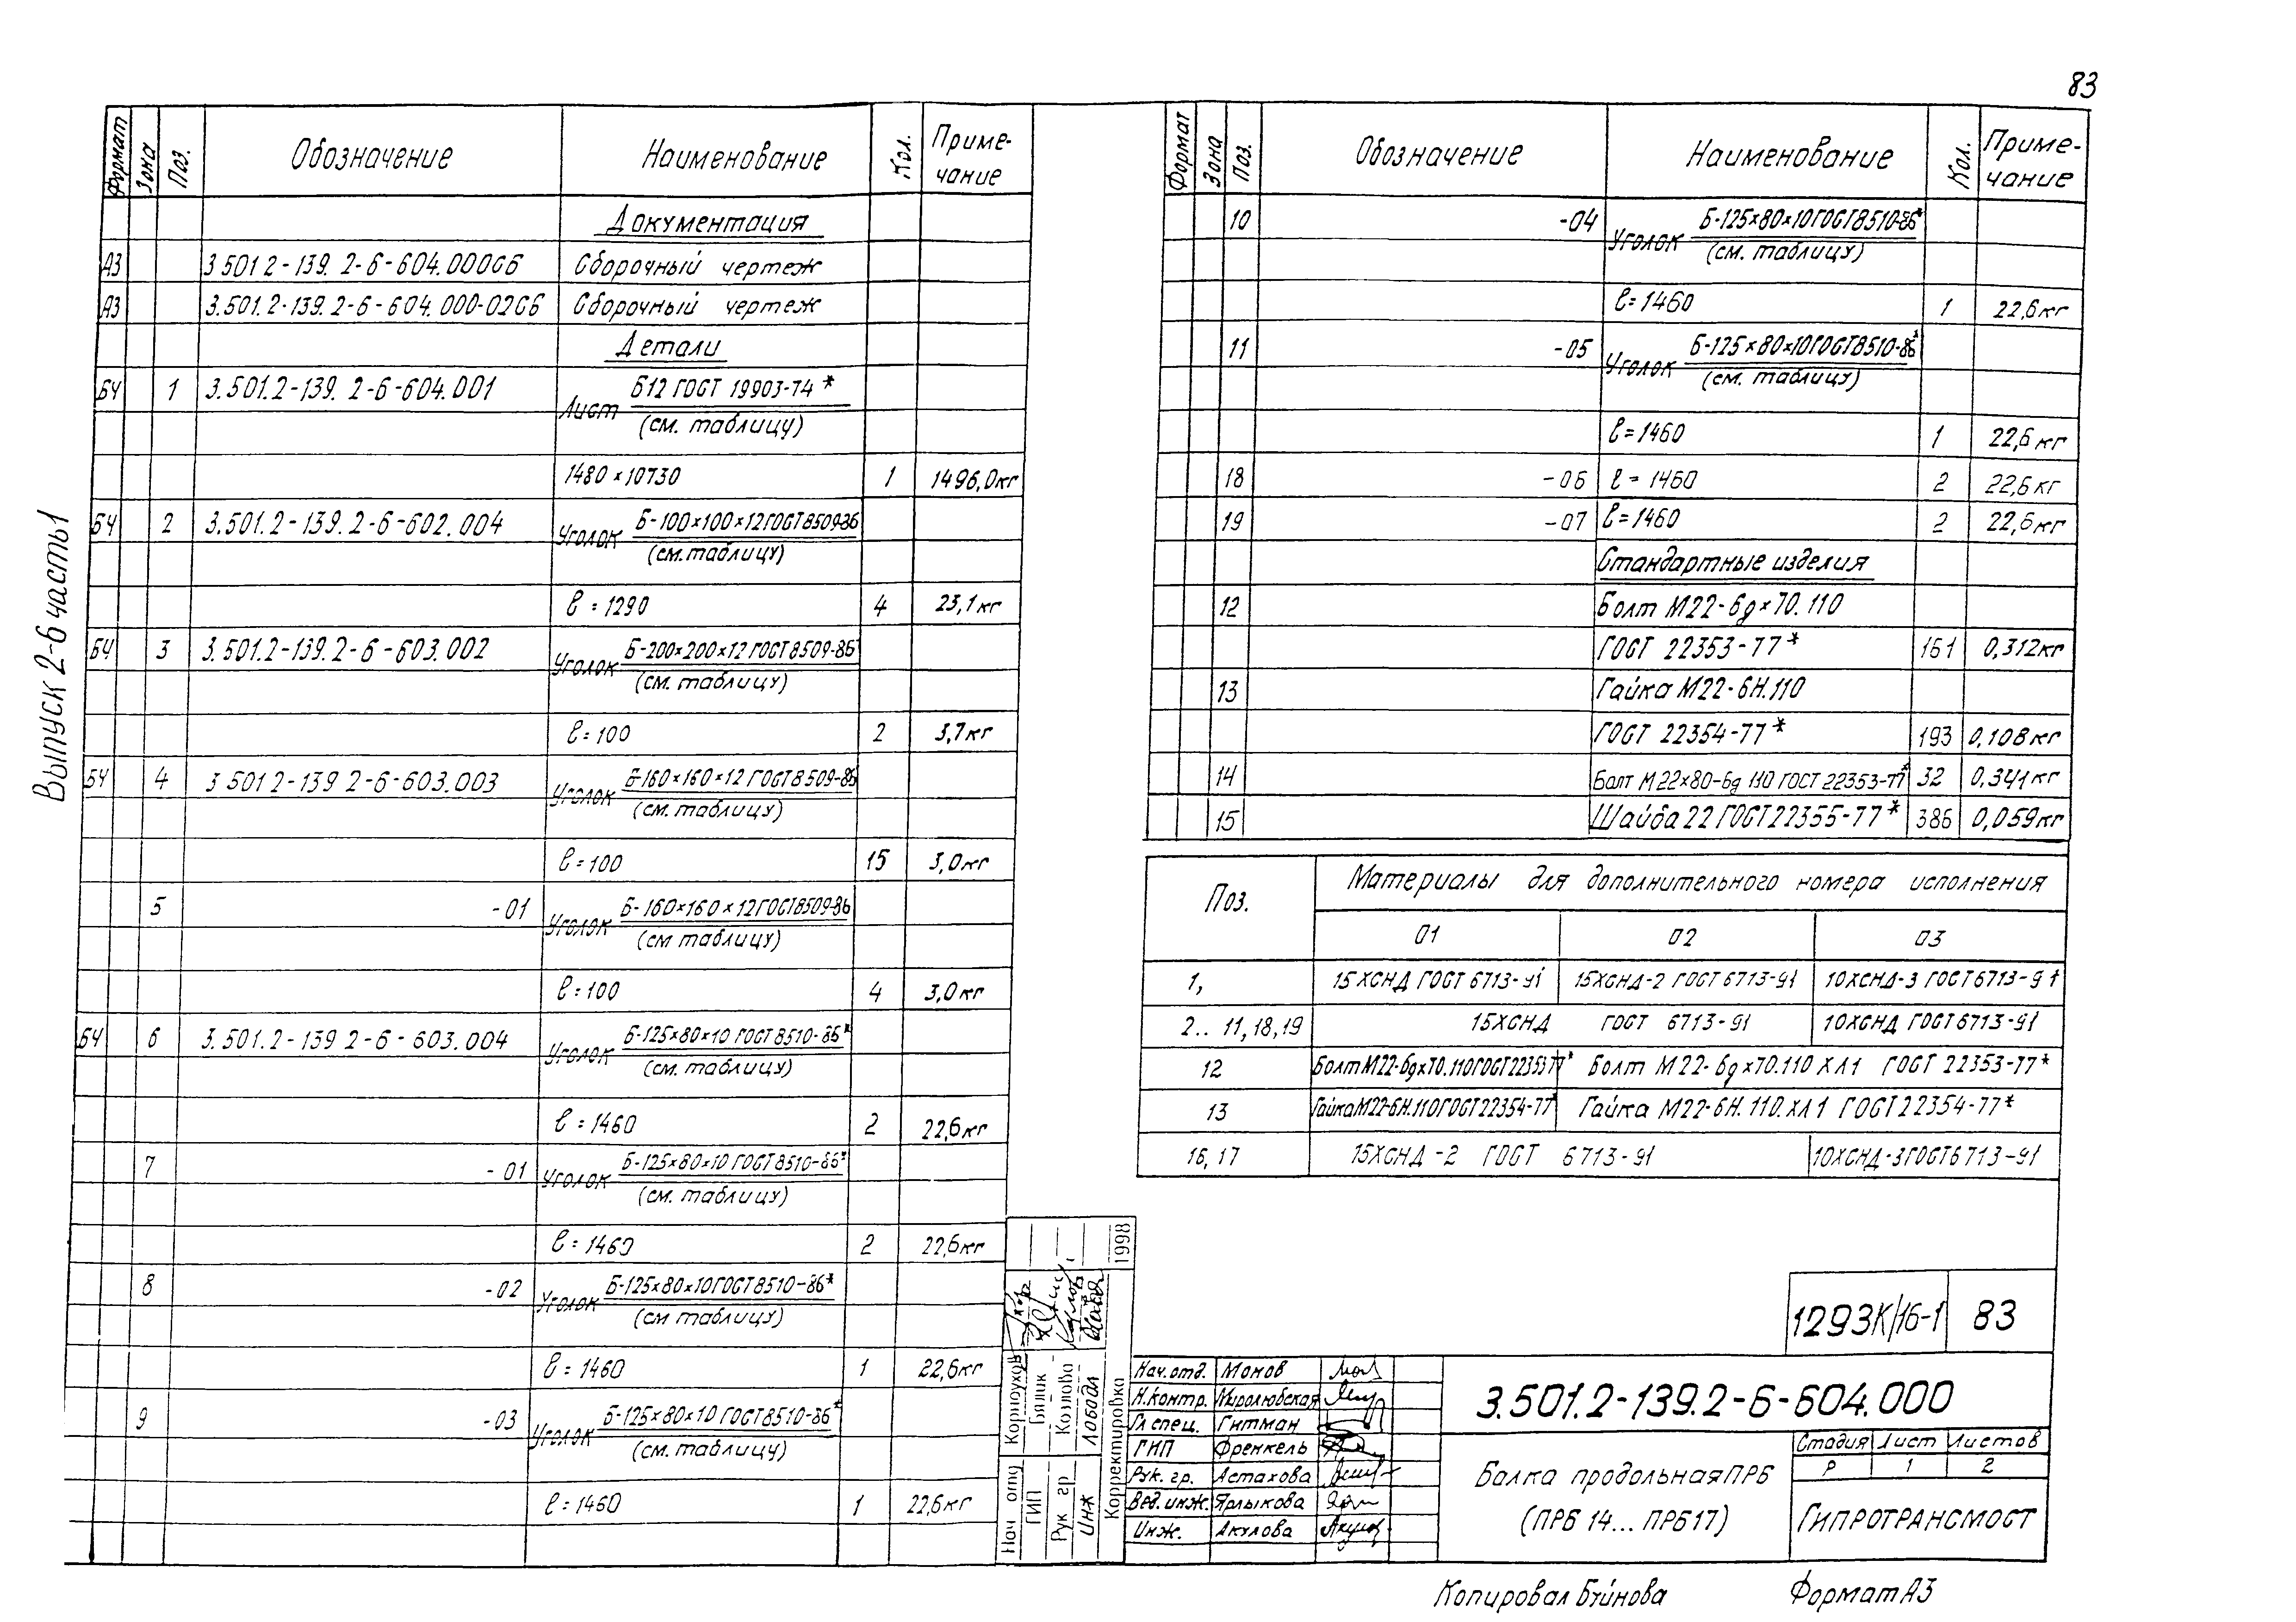 83
Выпуск 2-6 часть1
Формат Зона Поз. Обозначение Наименование Кол. Приме-чание
Документация
А3 3 501 2-139. 2-6-604.000СБ Сборочный чертеж
А3 3.501.2-139.2-6-604.000-02СБ Сборочный чертеж
Детали
БЧ 1 3.501.2-139. 2-6-604.001 Лист Б12 ГОСТ 19903-74*
(см. таблицу)
1480×10730 1 1496,0кг
БЧ 2 3.501.2-139.2-6-602.004 Уголок Б-100×100×12ГОСТ8509-86
(см.таблицу)
ℓ=1290 4 23,1кг
БЧ 3 3.501.2-139.2-6-603.002 Уголок Б-200×200×12 ГОСТ8509-86
(см. таблицу)
ℓ=100 2 3,7кг
БЧ 4 3 501 2-139 2-6-603.003 Уголок Б-160×160×12 ГОСТ8509-86
(см. таблицу)
ℓ=100 15 3,0кг
5 -01 Уголок Б-160×160×12ГОСТ8509-86
(см таблицу)
ℓ=100 4 3,0кг
БЧ 6 3.501.2-139 2-6-603.004 Уголок Б-125×80×10 ГОСТ8510-86*
(см. таблицу)
ℓ=1460 2 22,6кг
7 -01 Уголок Б-125×80×10 ГОСТ8510-86*
(см. таблицу)
ℓ=1460 2 22,6кг
8 -02 Уголок Б-125×80×10ГОСТ8510-86*
(см таблицу)
ℓ=1460 1 22,6кг
9 -03 Уголок Б-125×80×10 ГОСТ8510-86*
(см. таблицу)
ℓ=1460 1 22,6кг
Формат Зона Поз. Обозначение Наименование Кол. Приме-чание
10 -04 Уголок Б-125×80×10ГОСТ8510-86*
(см. таблицу)
ℓ=1460 1 22,6кг
11 -05 Уголок Б-125×80×10ГОСТ8510-86*
(см. таблицу)
ℓ=1460 1 22,6кг
18 -06 ℓ=1460 2 22,6кг
19 -07 ℓ=1460 2 22,6кг
Стандартные изделия
12 Болт М22-6g×70.110
ГОСТ 22353-77* 161 0,312кг
13 Гайка М22-6Н.110
ГОСТ 22354-77* 193 0,108кг
14 Болт М22×80-6g 110 ГОСТ 22353-77* 32 0,341кг
15 Шайба 22 ГОСТ22355-77* 386 0,059кг
Поз. Материалы для дополнительного номера исполнения
01 02 03
1, 15ХСНД ГОСТ 6713-91 15ХСНД-2 ГОСТ6713-91 10ХСНД-3 ГОСТ6713-91
2.. 11,18,19 15ХСНД ГОСТ 6713-91 10ХСНД ГОСТ6713-91
12 БолтМ22-6g×70.110ГОСТ22353-77* Болт М22-6g×70.110 ХЛ1 ГОСТ 22353-77*
13 ГайкаМ22-6Н.110ГОСТ22354-77* Гайка М22-6Н.110.ХЛ1 ГОСТ22354-77*
16,17 15ХСНД-2 ГОСТ 6713-91 10ХСНД-3ГОСТ6713-91
1293К/16-1 83
Нач отд Корноухов
ГИП Бялик
Рук гр Козлова
Инж Лобода
Корректировка 1998
Нач.отд. Монов
Н.контр. Миролюбская
Гл спец. Гитман
ГИП Френкель
Рук. гр. Астахова
Вед.инж. Ярлыкова
Инж. Акулова
3.501.2-139.2-6-604.000
Балка продольная ПРБ
(ПРБ 14... ПРБ17)
Стадия Лист Листов
Р 1 2
ГИПРОТРАНСМОСТ
Копировал
Формат А3